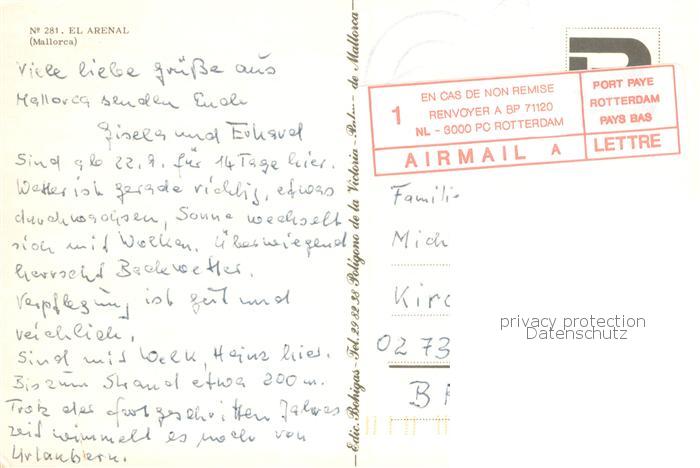 Nº 281. EL ARENAL
(Mallorca)
Viele liebe Grüße aus
Mallorca senden Euch
Gisela und Erhard
Sind ab 22.9. für 14 Tage hier.
Wetter ist gerade richtig, etwas
durchwachsen, Sonne wechselt
sich mit Wolken. Überwiegend
herrscht Badewetter.
Verpflegung ist gut und
reichlich.
Sind mit Heinz hier.
Bis zum Strand etwa 200 m.
Trotz der fortgeschritten Jahres
zeit wimmelt es noch von
Urlaubern.
Edic. Bohigas - Tel. 29 82 38 Polígono de la Victoria - Palma de Mallorca
EN CAS DE NON REMISE
1 RENVOYER A BP 71120
NL - 3000 PC ROTTERDAM
AIRMAIL A
PORT PAYE
ROTTERDAM
PAYS BAS
LETTRE
Famili
Mich
Kirc
02 73
privacy protection
Datenschutz